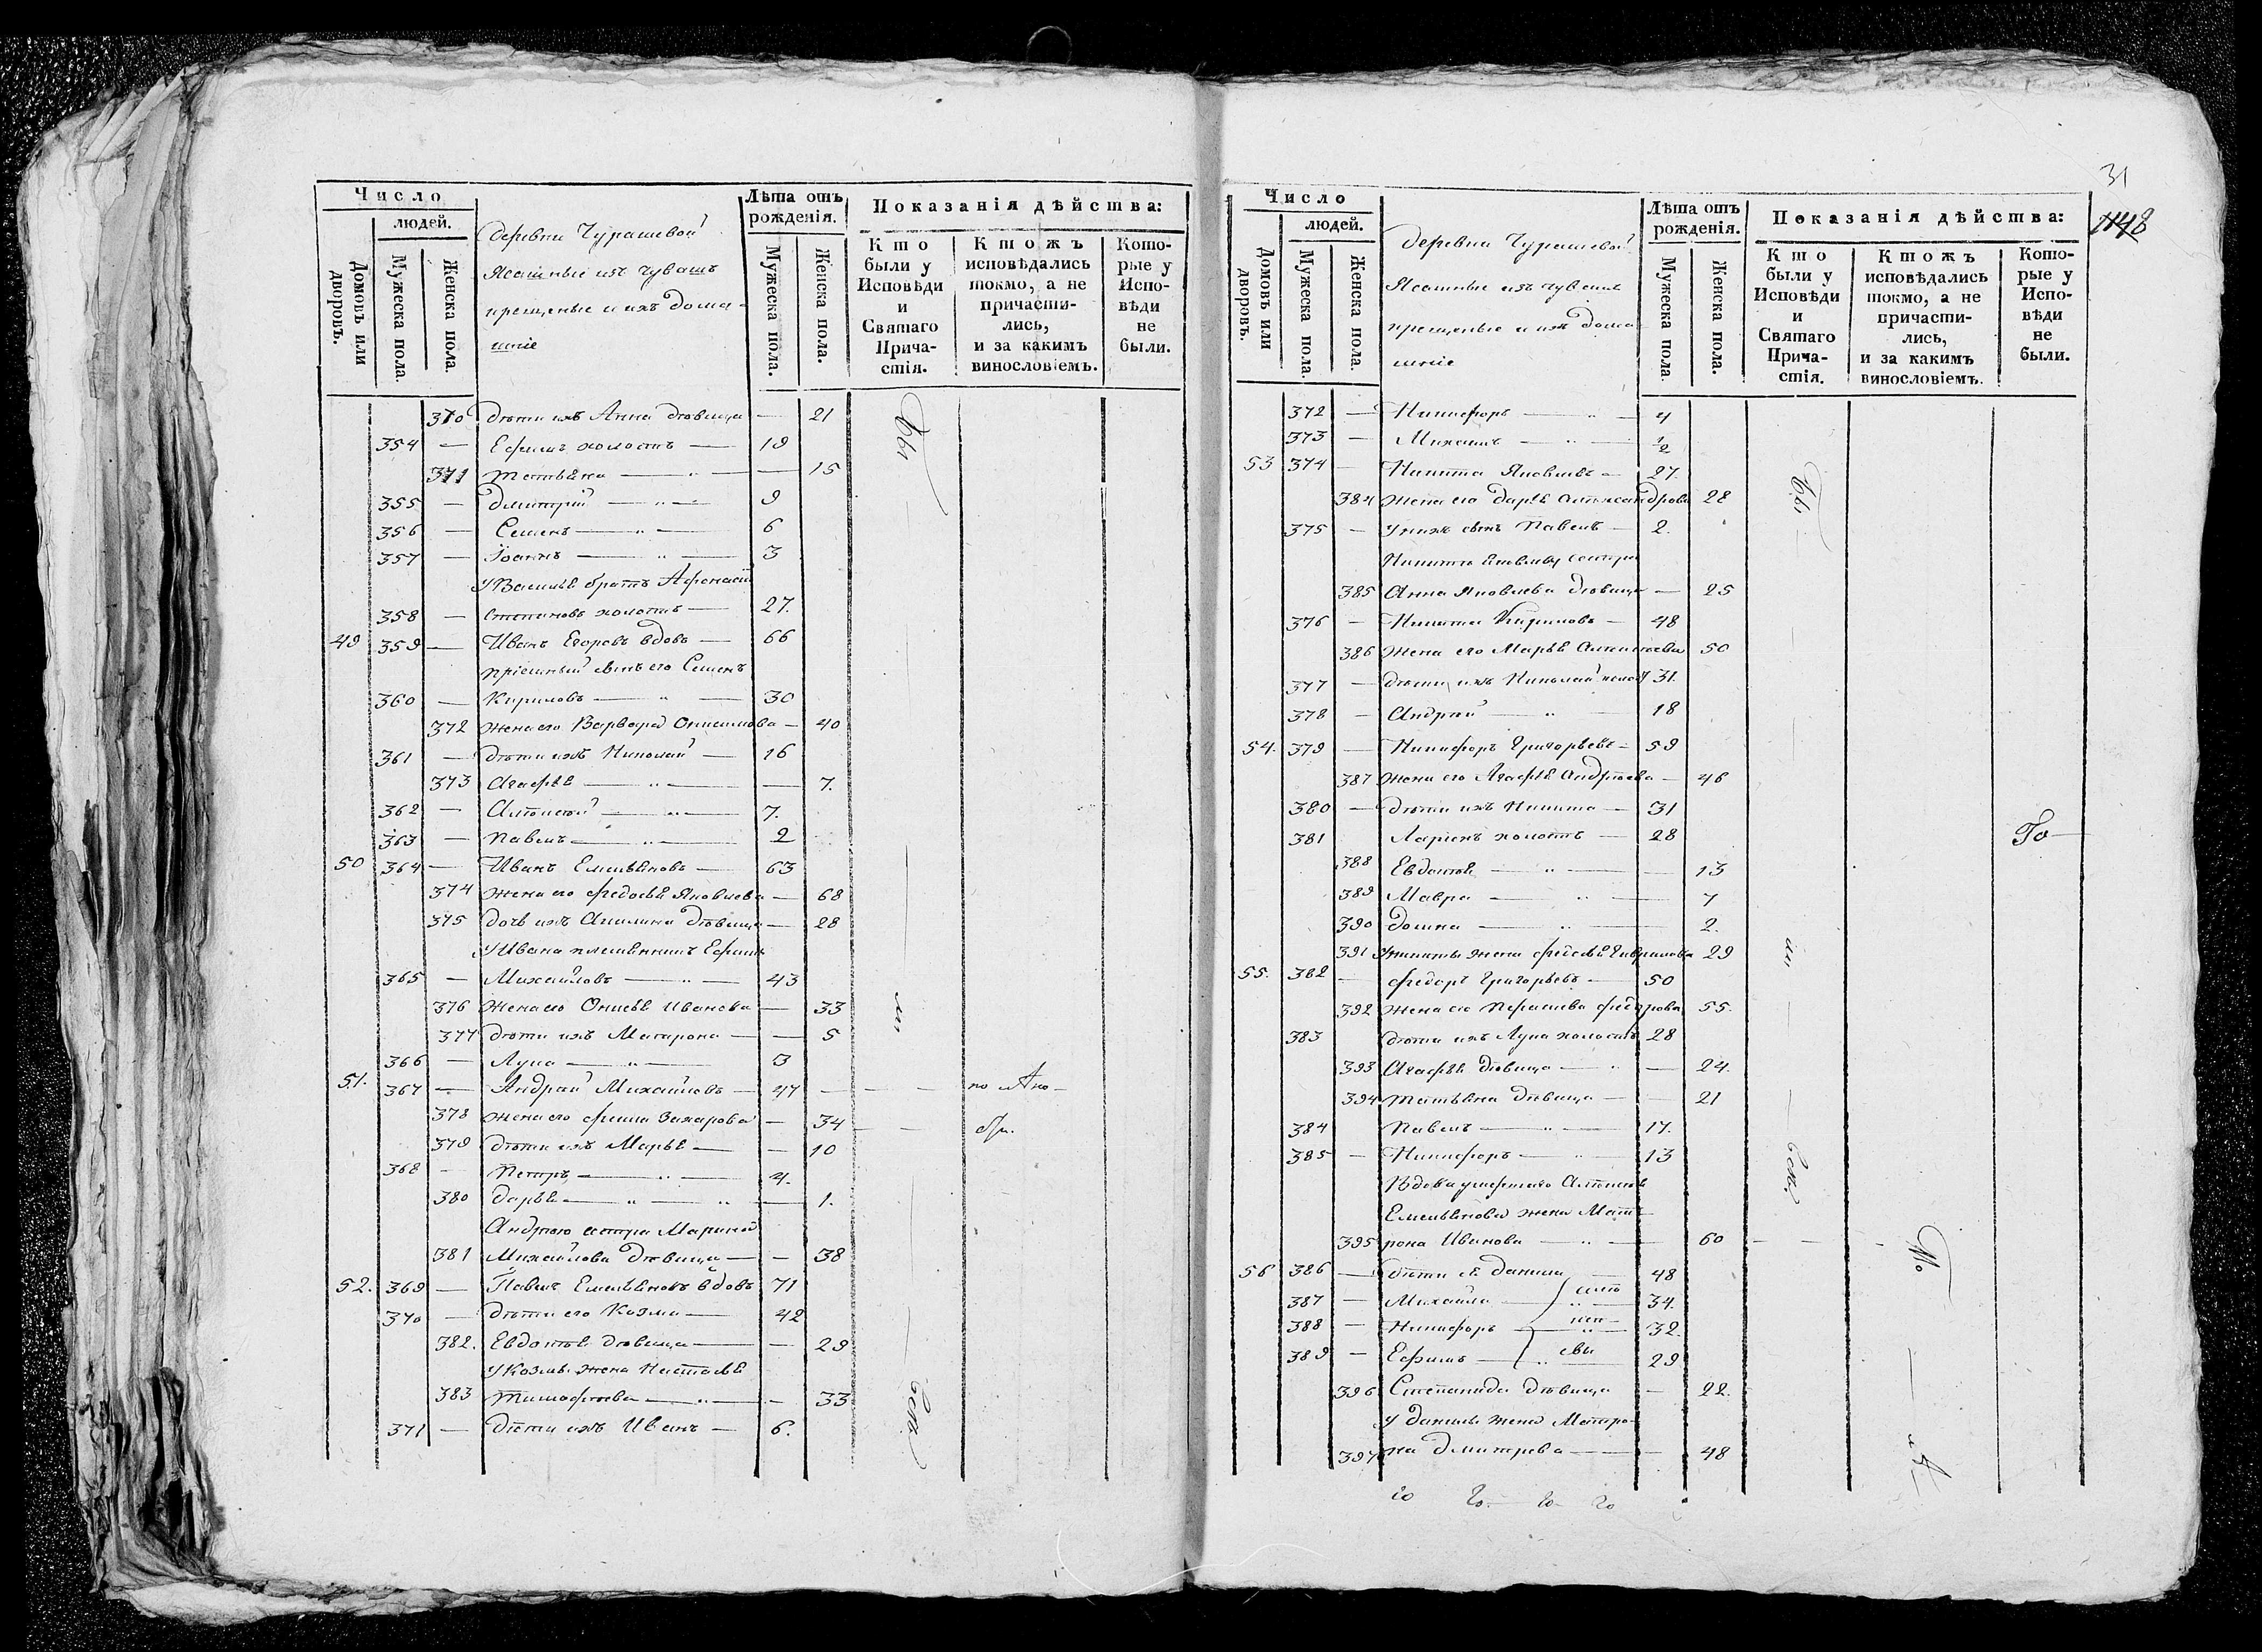 Число
людей.
Домовъ или дворовъ.
Мужеска пола.
Женска пола.
Деревни Чурашевой
Ясашные изъ чувашъ
крещеные и ихъ дома-
шніе
Лѣта отъ рожденія.
Мужеска пола.
Женска пола.
Показанія дѣйства:
Кто были у Исповѣди и Святаго Причастія.
Ктожъ исповѣдались токмо, а не причастились, и за какимъ винословіемъ.
Которые у Исповѣди не были.
370 дѣти ихъ Анна дѣвица — 21
354 — Ефимъ холостъ — 19
371 Татьяна — „ — 15
355 — Дмитрій — „ — 9
356 — Семенъ — „ — 6
357 — Іоаннъ — „ — 3
У Василья братъ Афонасій
358 — Степановъ холостъ — 27.
49 359 — Иванъ Егоровъ вдовъ — 66
пріемный сынъ его Семенъ
360 — Кириловъ — „ — 30
372 жена его Варвара Онисимова — 40
361 — дѣти ихъ Николай — 16
373 Агафья — „ — 7.
362 — Алексѣй — „ — 7.
363 — Павелъ — „ — 2
50 364 — Иванъ Емельяновъ — 63
374 жена его Федосья Яковлева — 68
375 дочь ихъ Акилина дѣвица — 28
У Ивана племянникъ Ефимъ
365 — Михайловъ — „ — 43
376 жена его Онисья Иванова — 33
377 дѣти ихъ Матрона — — 5
366 — Лука — „ — 3
51. 367 — Андрей Михайловъ — 47 — — — по
378 жена его Фекла Захарова — 34 — —
379 дѣти ихъ Марья — — 10
368 — Петръ — „ — 4.
380 Дарья — „ — „ — 1.
Андрею сестра Марина
381 Михайлова дѣвица — — 38
52. 369 — Павелъ Емельяновъ вдовъ 71
370 — дѣти его Козма — 42
382. Евдотья дѣвица — — 29
У Козмы жена Настасья
383 Тимофѣева — „ — 33
371 — дѣти ихъ Иванъ — 6.
Бы
ли
Вси
31
1148
Число
людей.
Домовъ или дворовъ.
Мужеска пола.
Женска пола.
Деревни Чурашевой
Ясашные изъ чувашъ
крещеные и ихъ дома-
шніе
Лѣта отъ рожденія.
Мужеска пола.
Женска пола.
Показанія дѣйства:
Кто были у Исповѣди и Святаго Причастія.
Ктожъ исповѣдались токмо, а не причастились, и за какимъ винословіемъ.
Которые у Исповѣди не были.
372 — Никифоръ — „ — 4
373 — Михаилъ — „ — ½
53 374 — Никита Яковлевъ — 27.
384 жена его Дарья Александрова 28
375 — У нихъ сынъ Павелъ — 2.
Никиты Яковлеву сестра
385 Анна Яковлева дѣвица — 25
376 — Никита Кириловъ — 48
386 жена его Марья Алексѣева 50
377 — дѣти ихъ Николай холост 31.
378 — Андрей — „ — 18
54. 379 — Никифоръ Григорьевъ — 59
387 жена его Агафья Андрѣева — 46
380 — дѣти ихъ Никита — 31
381 Ларіонъ холостъ — 28
388 Евдотья — „ — 13
389 Мавра — „ — 7
390 Домна — „ — 2.
391 У Никиты жена Федосья Гаврилова 29
55. 382 — Федоръ Григорьевъ — 50
392 жена его Федорова 55.
383 дѣти ихъ Лука холостъ 28
393 Агафья дѣвица — „ — 24.
394 Татьяна дѣвица — — 21
384 Павелъ — „ — 17.
385 — Никифоръ — „ — 13
Вдова умершаго Алексѣя
Емельянова жена Мат-
395 рона Иванова — „ — 60 — —
56 386 — дѣти ея Данила — 48
387 — Михайла — „ — 34.
388 — Никифоръ — „ — 32.
389 — Ефимъ — „ — 29
396 Степанида дѣвица — 22.
У Данилы жена Матро-
397 на Дмитрева — — 48
Бы
ли
Вси
То